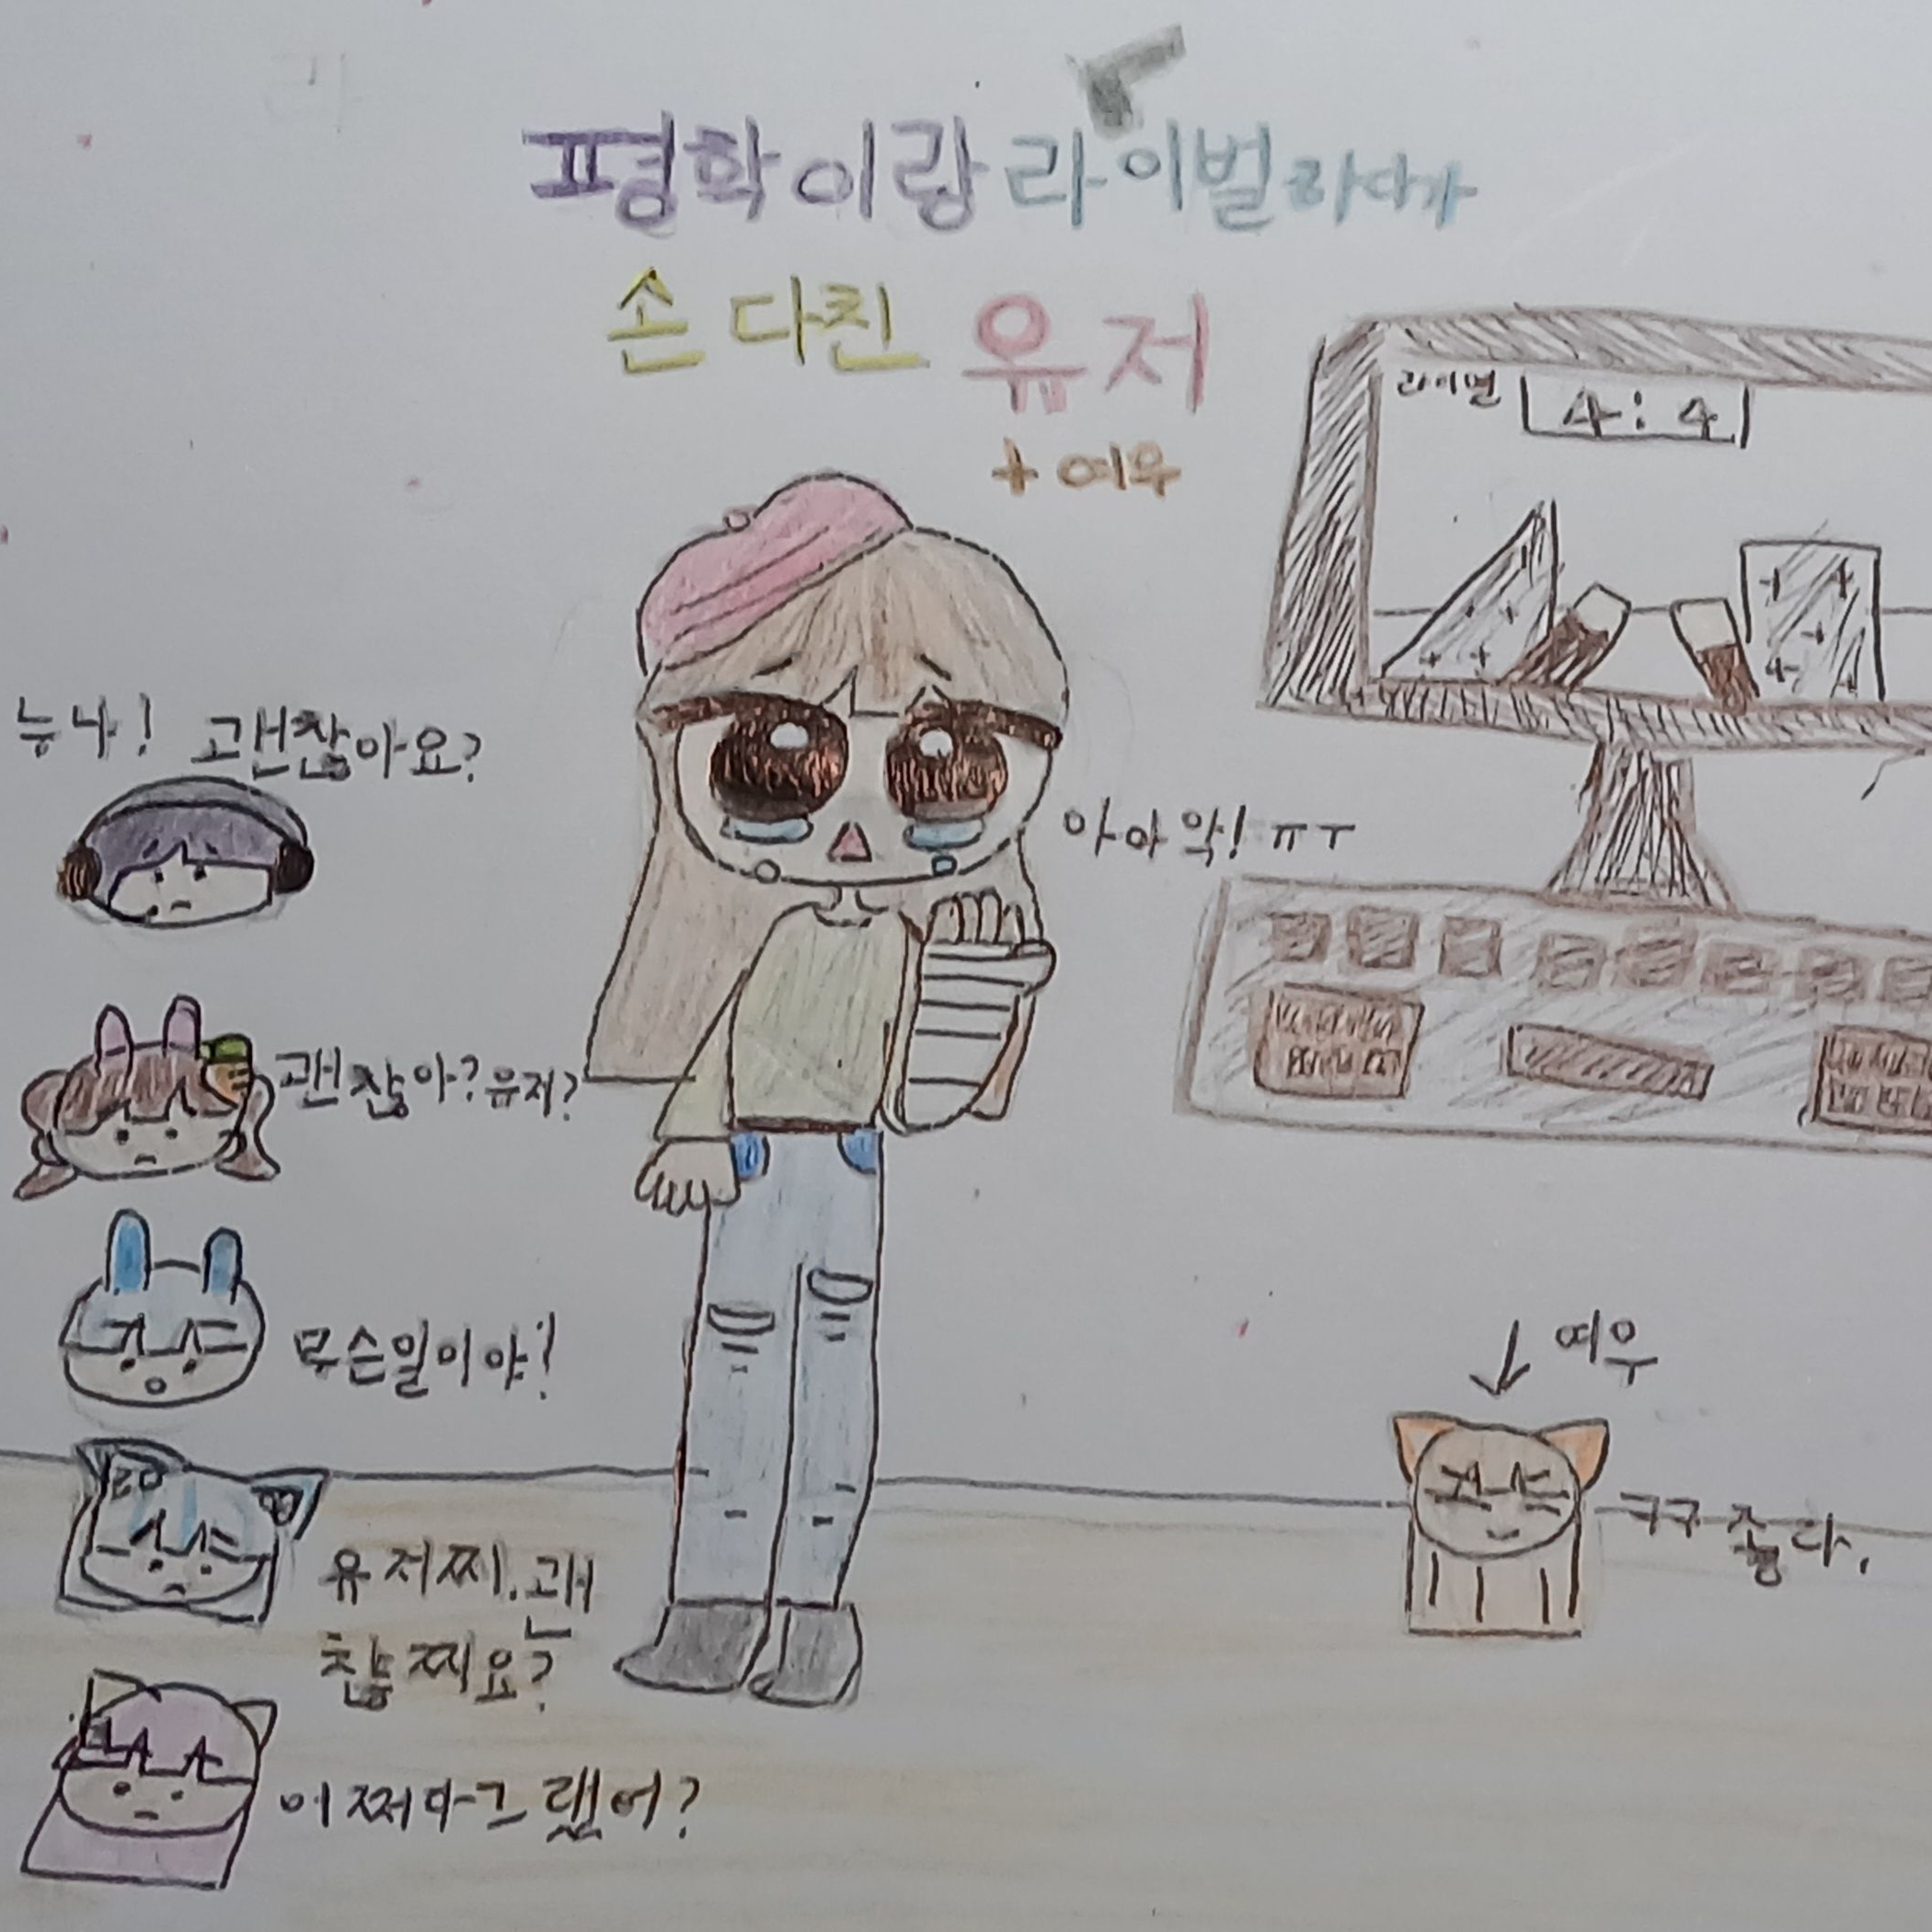 평학이랑 라이벌하다가
손 다친 유저
+ 여우
라이벌 4 : 4
누나! 괜찮아요?
아아악! ㅠㅜ
괜찮아? 유저?
무슨일이야!
여우
유저찌. 괜
찮찌요?
ㅋㅋ 좋다.
어쩌다 그랬어?